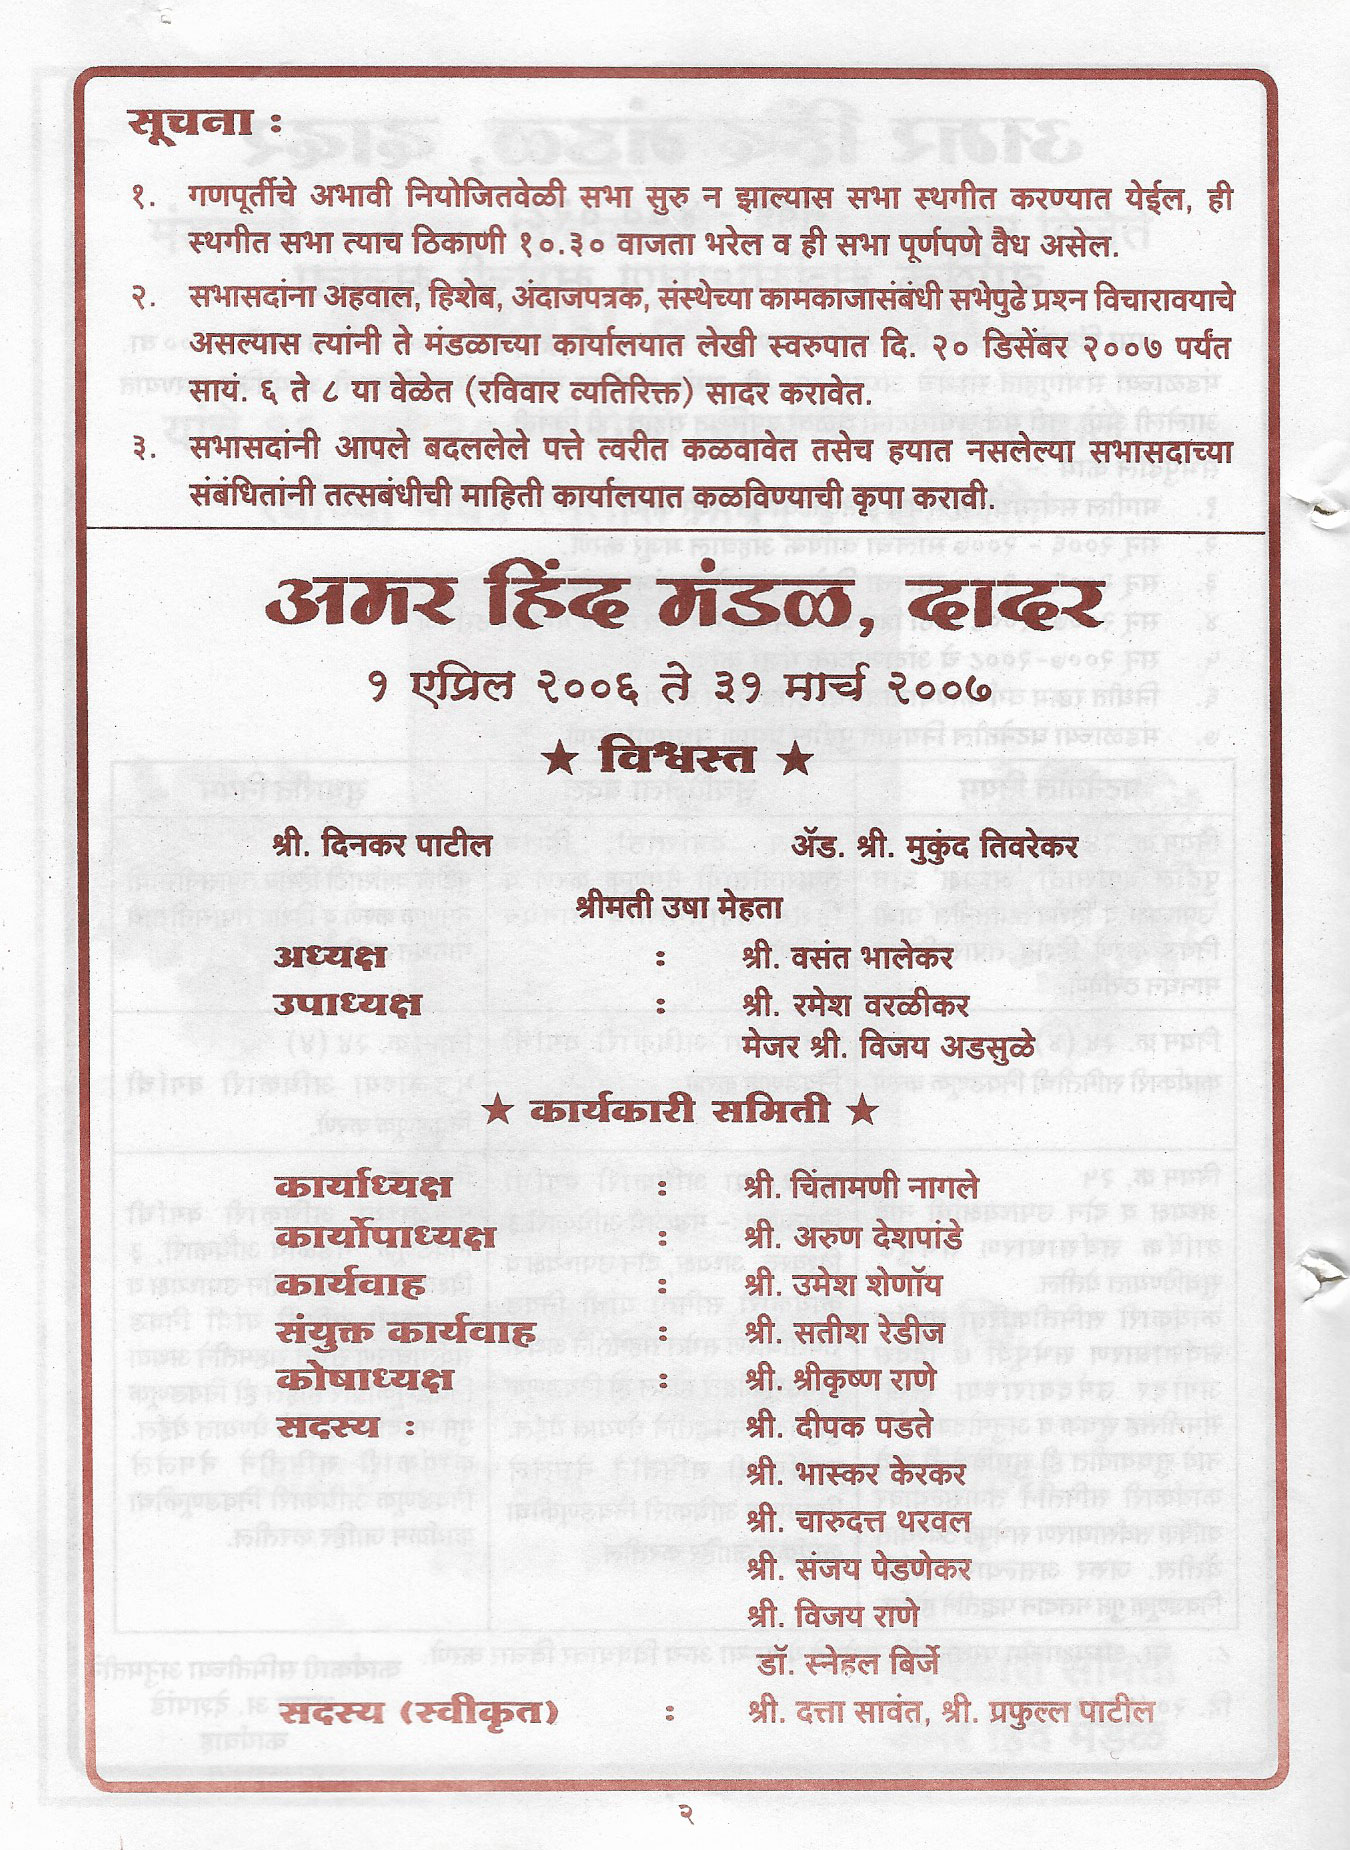 सूचना :
१. गणपूर्तीचे अभावी नियोजितवेळी सभा सुरु न झाल्यास सभा स्थगीत करण्यात येईल, ही
स्थगीत सभा त्याच ठिकाणी १०.३० वाजता भरेल व ही सभा पूर्णपणे वैध असेल.
२. सभासदांना अहवाल, हिशेब, अंदाजपत्रक, संस्थेच्या कामकाजासंबंधी सभेपुढे प्रश्न विचारावयाचे
असल्यास त्यांनी ते मंडळाच्या कार्यालयात लेखी स्वरुपात दि. २० डिसेंबर २००७ पर्यंत
सायं. ६ ते ८ या वेळेत (रविवार व्यतिरिक्त) सादर करावेत.
३. सभासदांनी आपले बदललेले पत्ते त्वरीत कळवावेत तसेच हयात नसलेल्या सभासदाच्या
संबंधितांनी तत्सबंधीची माहिती कार्यालयात कळविण्याची कृपा करावी.
अमर हिंद मंडळ, दादर
१ एप्रिल २००६ ते ३१ मार्च २००७
★ विश्वस्त ★
श्री. दिनकर पाटील ॲड. श्री. मुकुंद तिवरेकर
श्रीमती उषा मेहता
अध्यक्ष : श्री. वसंत भालेकर
उपाध्यक्ष : श्री. रमेश वरळीकर
मेजर श्री. विजय अडसुळे
★ कार्यकारी समिती ★
कार्याध्यक्ष : श्री. चिंतामणी नागले
कार्योपाध्यक्ष : श्री. अरुण देशपांडे
कार्यवाह : श्री. उमेश शेणॉय
संयुक्त कार्यवाह : श्री. सतीश रेडीज
कोषाध्यक्ष : श्री. श्रीकृष्ण राणे
सदस्य : श्री. दीपक पडते
श्री. भास्कर केरकर
श्री. चारुदत्त थरवल
श्री. संजय पेडणेकर
श्री. विजय राणे
डॉ. स्नेहल बिर्जे
सदस्य (स्वीकृत) : श्री. दत्ता सावंत, श्री. प्रफुल्ल पाटील
२